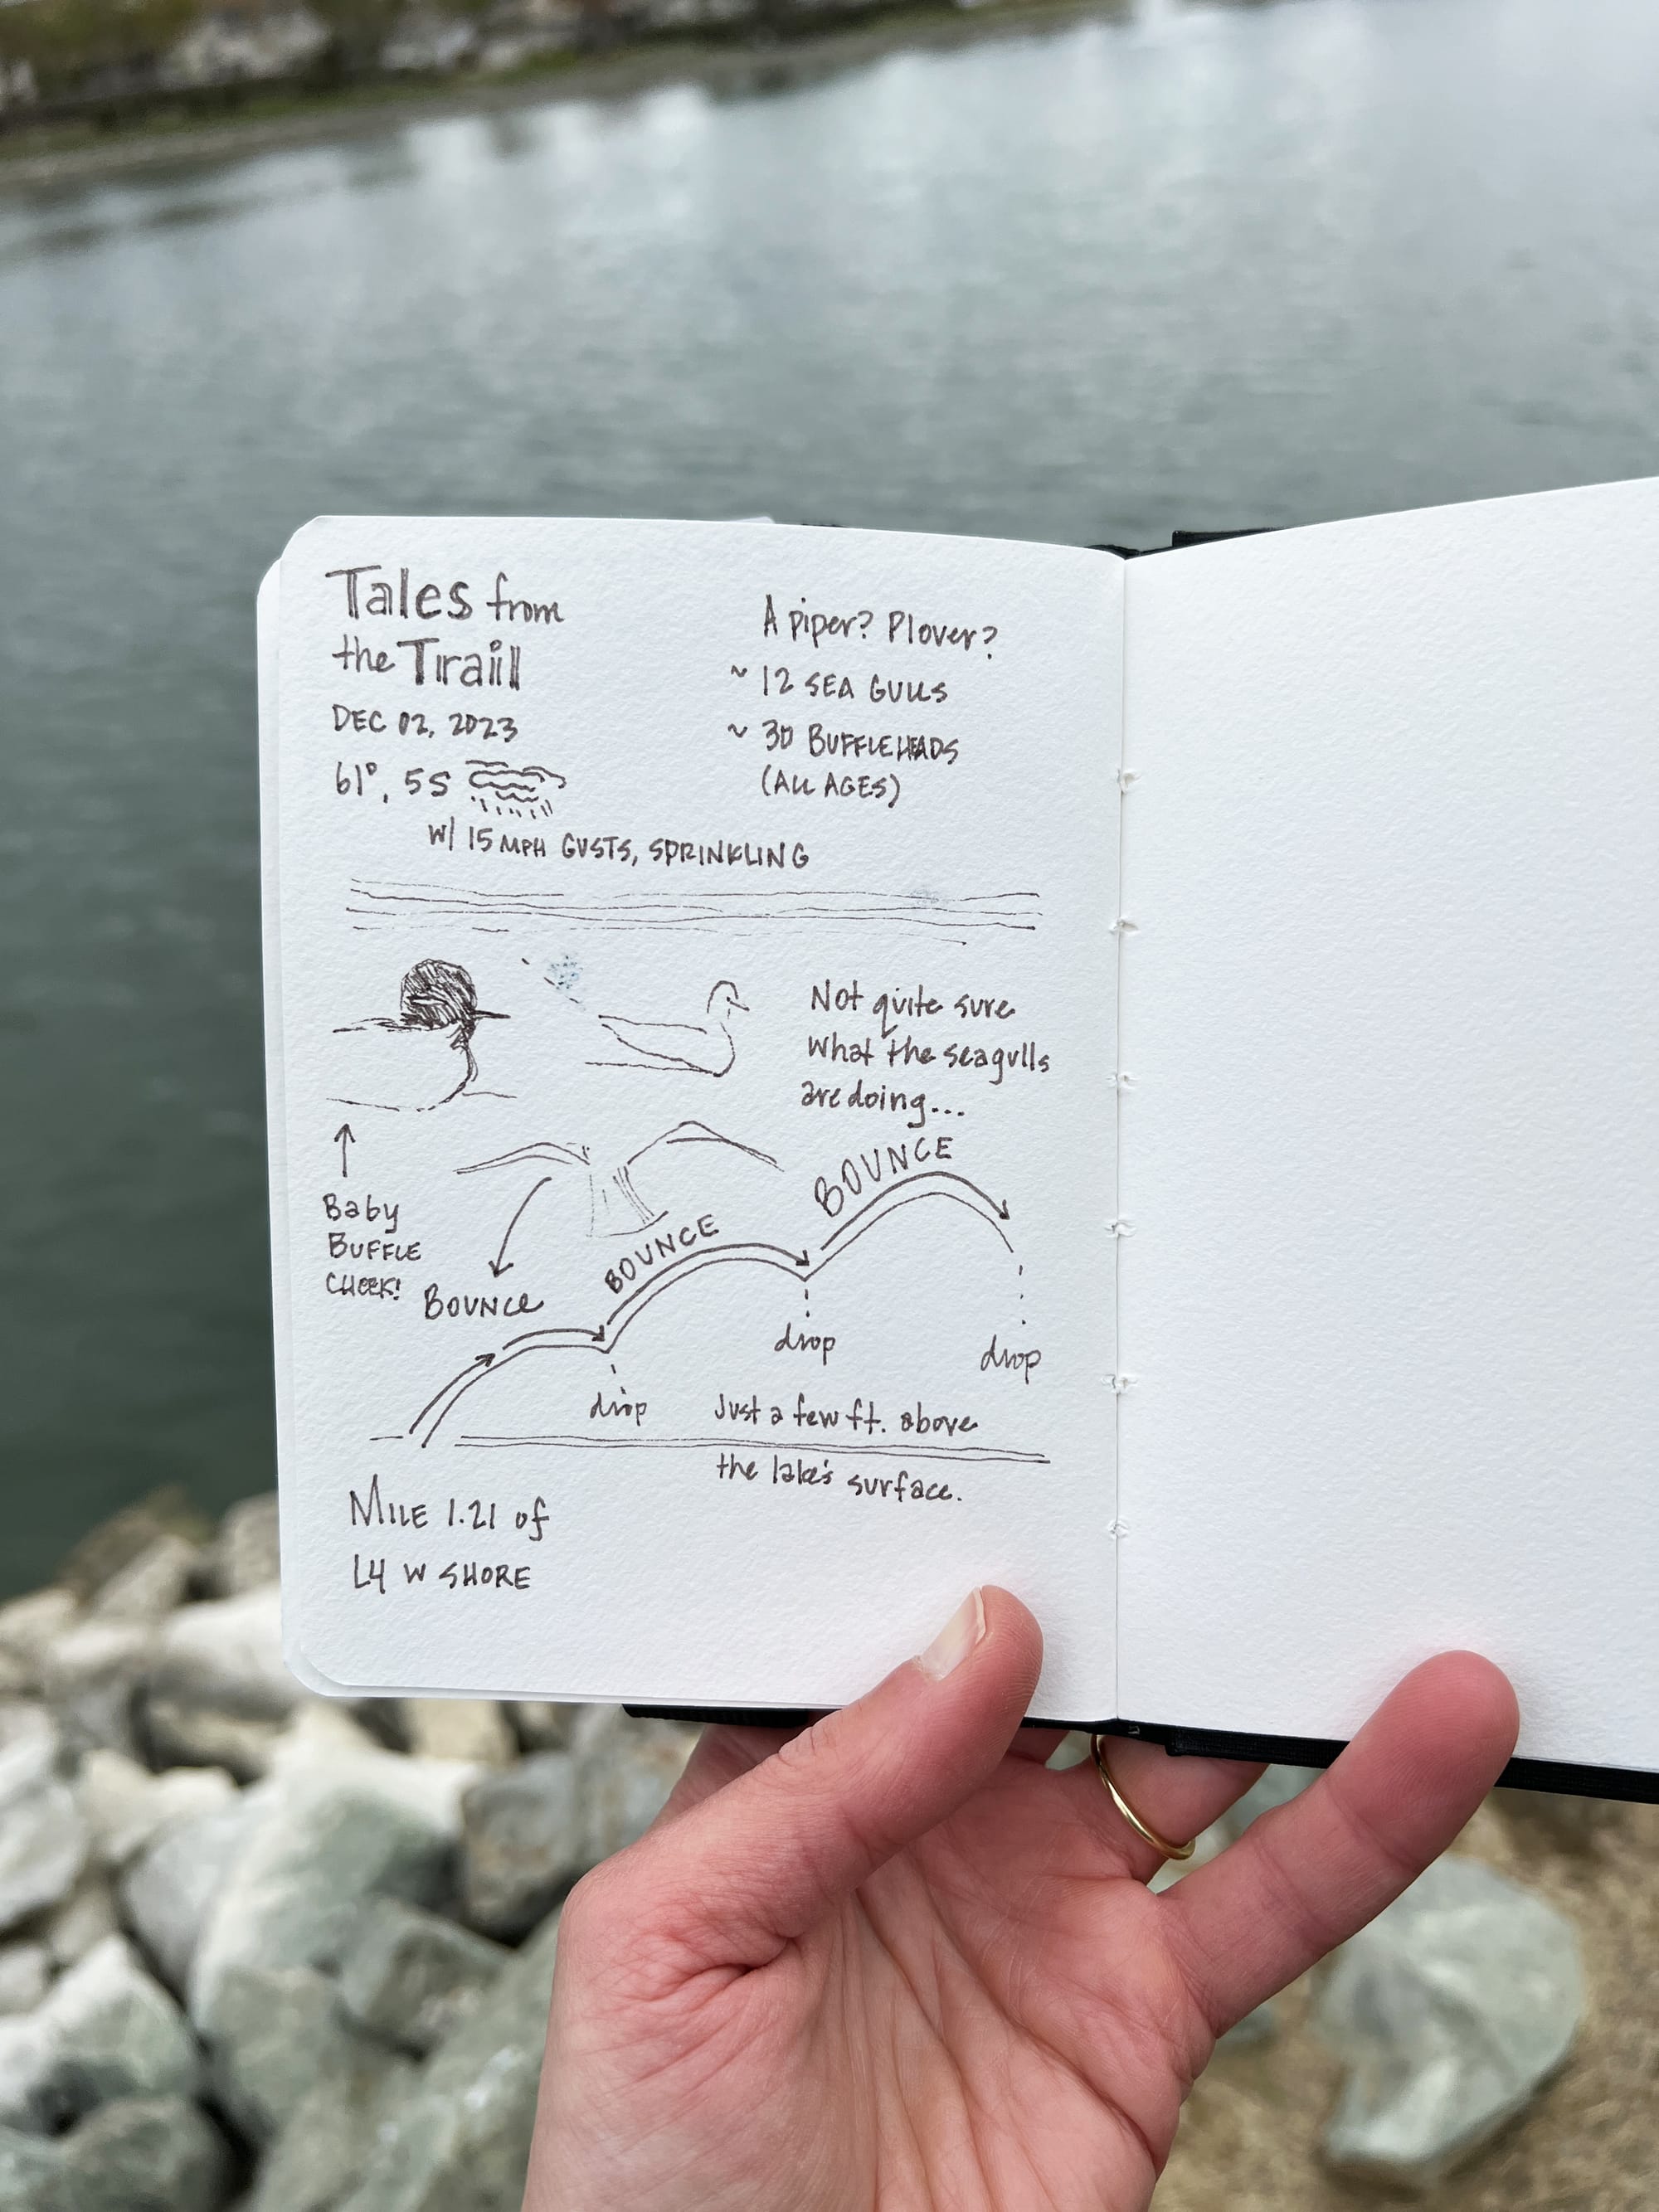 Tales from
the Trail
DEC 02, 2023
61°, 5S
W/ 15 MPH GUSTS, SPRINKLING
A piper? Plover?
~ 12 SEA GULLS
~ 30 BUFFLEHEADS
(ALL AGES)
Not quite sure
What the seagulls
are doing...
Baby
BUFFLE
CHEEK!
BOUNCE
BOUNCE
BOUNCE
drop
drop
drop
Just a few ft. above
the lake's surface.
MILE 1.21 of
L4 W SHORE